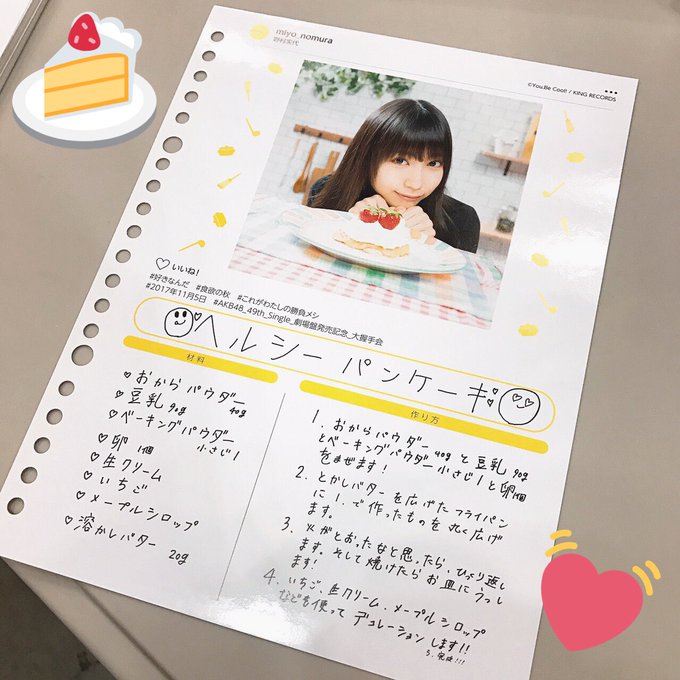 miyo_nomura
野村実代
©You,Be Cool! / KING RECORDS
いいね!
#好きなんだ #食欲の秋 #これがわたしの勝負メシ
#2017年11月5日 #AKB48_49th_Single_劇場盤発売記念_大握手会
ヘルシーパンケーキ
材料
♡おからパウダー 40g
♡豆乳 90g
♡ベーキングパウダー 小さじ1
♡卵 1個
♡生クリーム
♡いちご
♡メープルシロップ
♡溶かしバター 20g
作り方
1. おからパウダー 40g と豆乳 90g
とベーキングパウダー小さじ1と卵1個
をまぜます!
2. とかしバターを広げたフライパン
に1.で作ったものを丸く広げ
ます。
3. 火がとおったなと思ったら、ひっくり返し
ます。そして焼けたらお皿にうつし
ます!
4. いちご、生クリーム、メープルシロップ
などを使って デコレーションします!!
5. 完成!!!